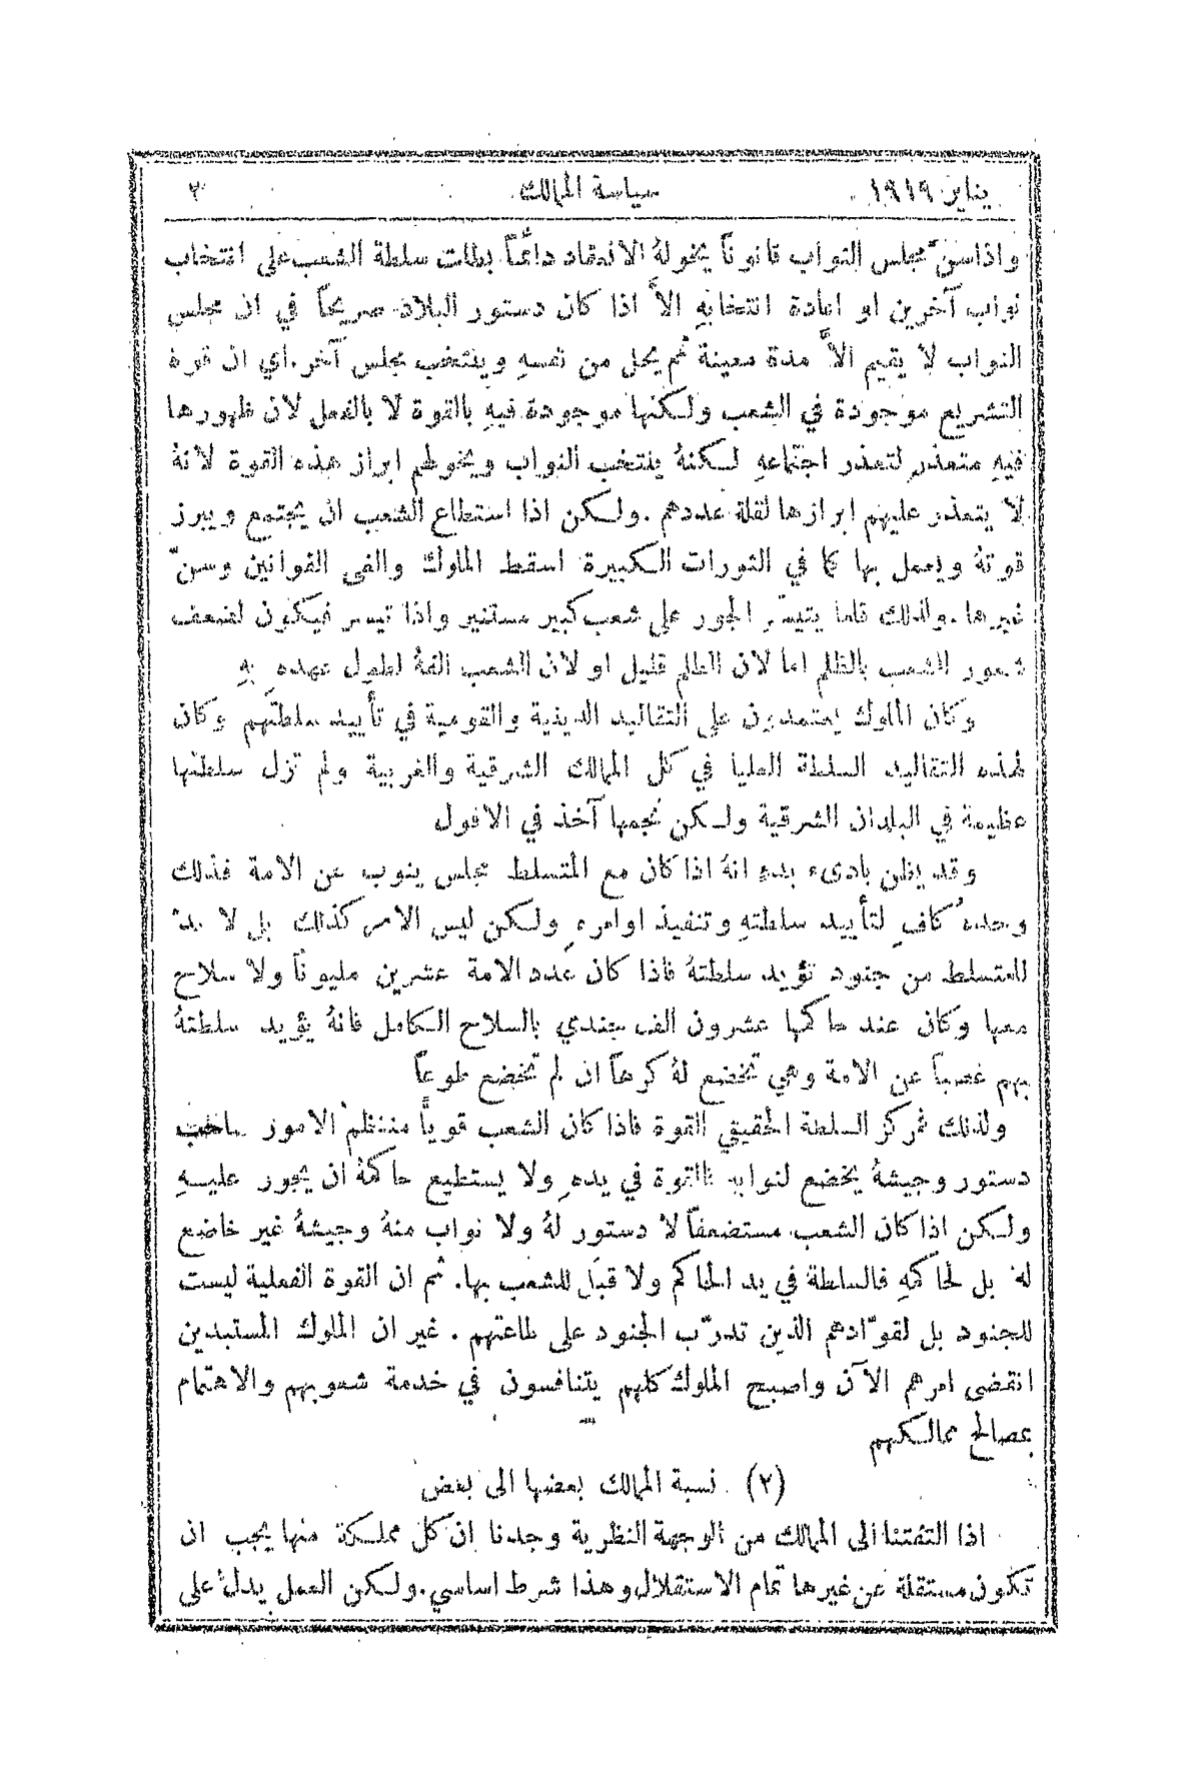 يناير ١٩١٩ سياسة الممالك ٣
واذا سنّ مجلس النواب قانوناً يخولهُ الانعقاد دائماً بطلت سلطة الشعب على انتخاب
نواب آخرين او اعادة انتخابهِ الاَّ اذا كان دستور البلاد صريحاً في ان مجلس
النواب لا يقيم الاَّ مدة معينة ثم يحل من نفسهِ وينتخب مجلس آخر. اي ان قوة
التشريع موجودة في الشعب ولكنها موجودة فيهِ بالقوة لا بالفعل لان ظهورها
فيهِ متعذر لتعذر اجتماعهِ لكنهُ ينتخب النواب ويخولهم ابراز هذه القوة لانهُ
لا يتعذر عليهم ابرازها لقلة عددهم . ولكن اذا استطاع الشعب ان يجتمع ويبرز
قوتهُ ويعمل بها كما في الثورات الكبيرة اسقط الملوك والغى القوانين وسنّ
غيرها . ولذلك قلما يتيسّر الجور على شعب كبير مستنير واذا تيسر فيكون لضعف
شعور الشعب بالظلم اما لان الظلم قليل او لان الشعب الفهُ لطول عهده بهِ
وكان الملوك يعتمدون على التقاليد الدينية والقومية في تأييد سلطتهم وكان
لهذه التقاليد السلطة العليا في كل الممالك الشرقية والغربية ولم تزل سلطتها
عظيمة في البلدان الشرقية ولكن نجمها آخذ في الافول
وقد يظن بادىء بدءٍ انهُ اذا كان مع المتسلط مجلس ينوب عن الامة فذلك
وحدهُ كافٍ لتأييد سلطتهِ وتنفيذ اوامرهِ ولكن ليس الامر كذلك بل لا بدّ
للمتسلط من جنود تؤيد سلطتهُ فاذا كان عدد الامة عشرين مليوناً ولا سلاح
معها وكان عند حاكمها عشرون الف جندي بالسلاح الكامل فانهُ يؤيد سلطتهُ
بهم غصباً عن الامة وهي تخضع لهُ كرهاً ان لم تخضع طوعاً
ولذلك فمركز السلطة الحقيقي القوة فاذا كان الشعب قوياً منتظم الامور صاحب
دستور وجيشهُ يخضع لنوابهِ فالقوة في يدهِ ولا يستطيع حاكمهُ ان يجور عليهِ
ولكن اذا كان الشعب مستضعفاً لا دستور لهُ ولا نواب منهُ وجيشهُ غير خاضع
لهُ بل لحاكمهِ فالسلطة في يد الحاكم ولا قبل للشعب بها. ثم ان القوة الفعلية ليست
للجنود بل لقوّادهم الذين تدرّب الجنود على طاعتهم . غير ان الملوك المستبدين
انقضى امرهم الآن واصبح الملوك كلهم يتنافسون في خدمة شعوبهم والاهتمام
بمصالح ممالكهم
(٢) نسبة الممالك بعضها الى بعض
اذا التفتنا الى الممالك من الوجهة النظرية وجدنا ان كل مملكة منها يجب ان
تكون مستقلة عن غيرها تمام الاستقلال وهذا شرط اساسي. ولكن العمل يدل على